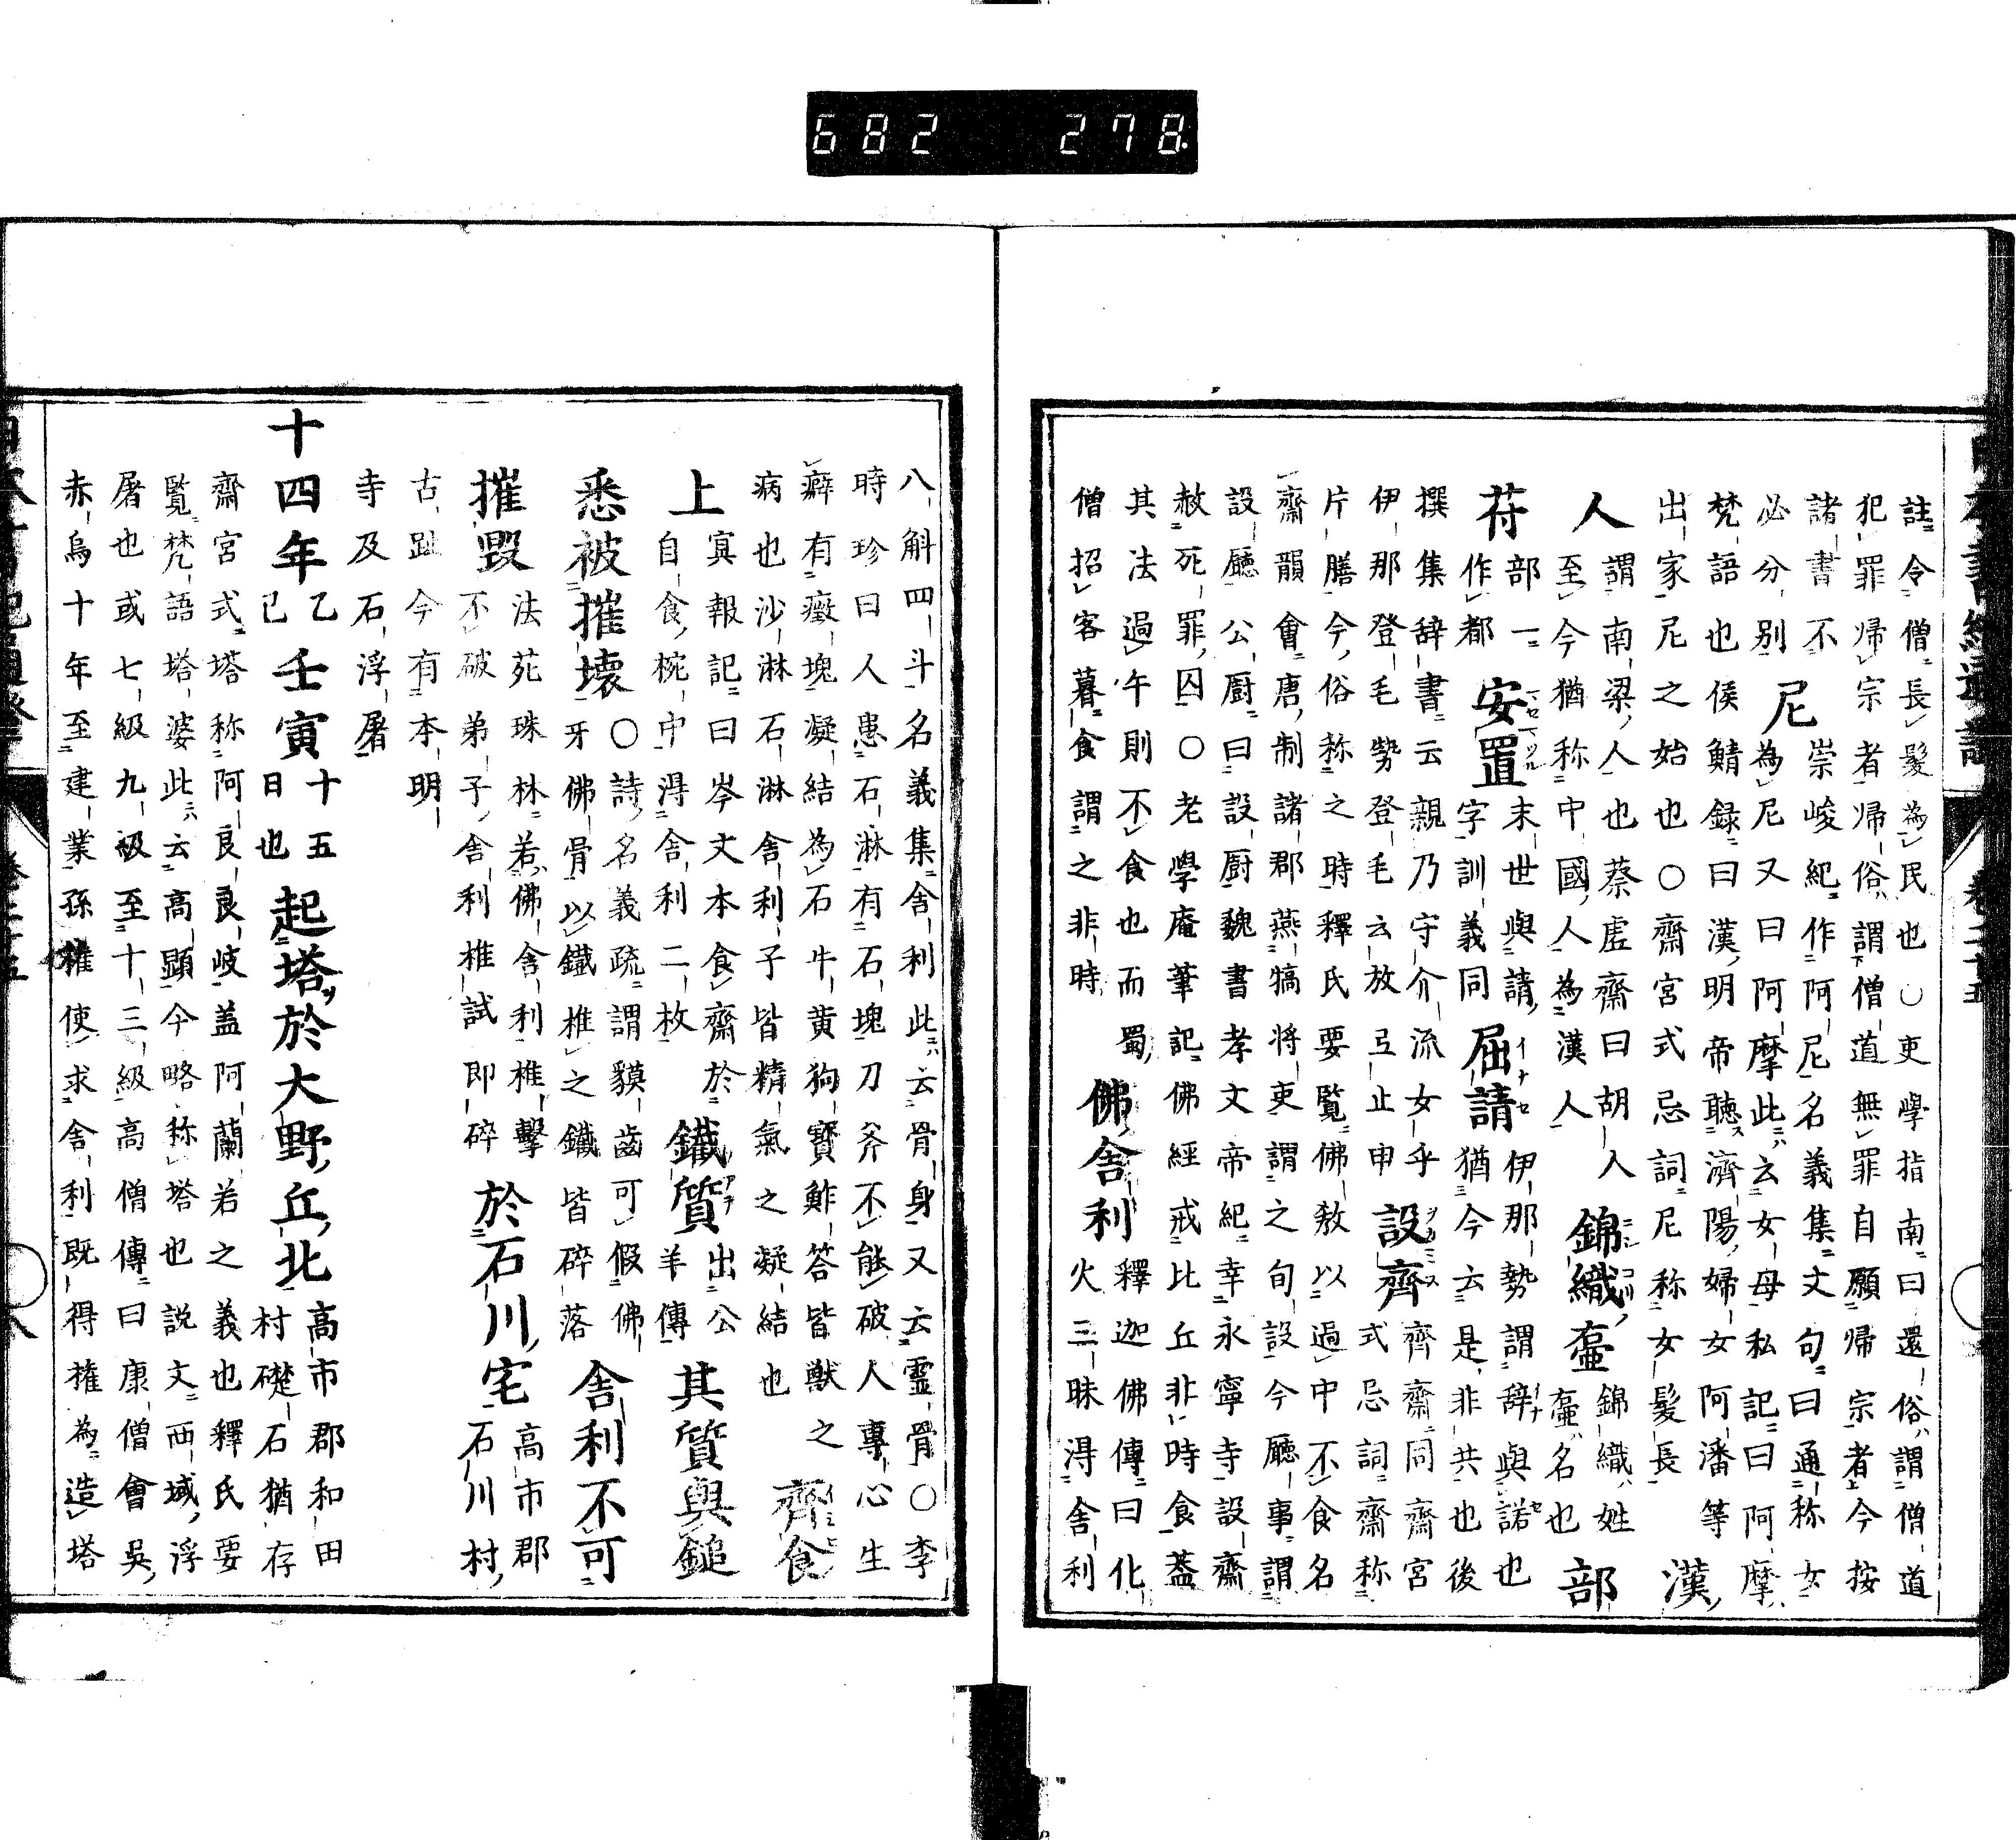 682 278
註令僧長髮為民也○吏學指南曰還俗謂僧道
犯罪帰宗者帰俗謂僧道無罪自願帰宗者今按
諸書不
必分別
尼
崇峻紀作阿尼名義集文句曰通称女
為尼又曰阿摩此云女母私記曰阿摩
梵語也侯鯖録曰漢明帝聴濟陽婦女阿潘等
出家尼之始也○齋宮式忌詞尼称女髮長
漢
人
謂南梁人也蔡虚齋曰胡人
至今猶称中國人為漢人
錦織壷
錦織姓
壷名也
部
苻
部一
作都
安置
末世與請
字訓義同
屈請
伊那勢謂辞與諾也
猶今云是非共也後
撰集辞書云親乃守介流女乎
伊那登毛㔟登毛云放弖止申
設齊
齊齋同齋宮
式忌詞齋称
片膳今俗称之時釋氏要覧佛教以過中不食名
齋韻會唐制諸郡燕犒将吏謂之旬設今廳事謂
設廳公厨曰設厨魏書孝文帝紀幸永寧寺設齋
赦死罪囚○老學庵筆記佛經戒比丘非時食蓋
其法過午則不食也而蜀
僧招客暮食謂之非時
佛舎利
釋迦佛傳曰化
火三昧得舎利
八斛四斗名義集舎利此云骨身又云霊骨○李
時珍曰人患石淋有石塊刀斧不能破人專心生
癖有癥塊凝結為石牛黄狗寳鮓荅皆獣之
病也沙淋石淋舎利子皆精氣之凝結也
齊食
上
寘報記曰岑文本食齋於
自食椀中得舎利二枚
鐵質
出公
羊傳
其質與鎚
悉被摧壊
○詩名義疏謂貘齒可假佛
牙佛骨以鐵椎之鐵皆碎落
舎利不可
摧毀
法苑珠林若佛舎利椎擊
不破弟子舎利椎試即碎
於石川宅
高市郡
石川村
古趾今有本明
寺及石浮屠
十四年
乙
已
壬寅
十五
日也
起塔於大野丘北
高市郡和田
村礎石猶存
齋宮式塔称阿良良岐蓋阿蘭若之義也釋氏要
覧梵語塔婆此云高顕今略称塔也説文西域浮
屠也或七級九級至十三級高僧傳曰康僧會吳
赤烏十年至建業孫權使求舎利既得権為造塔